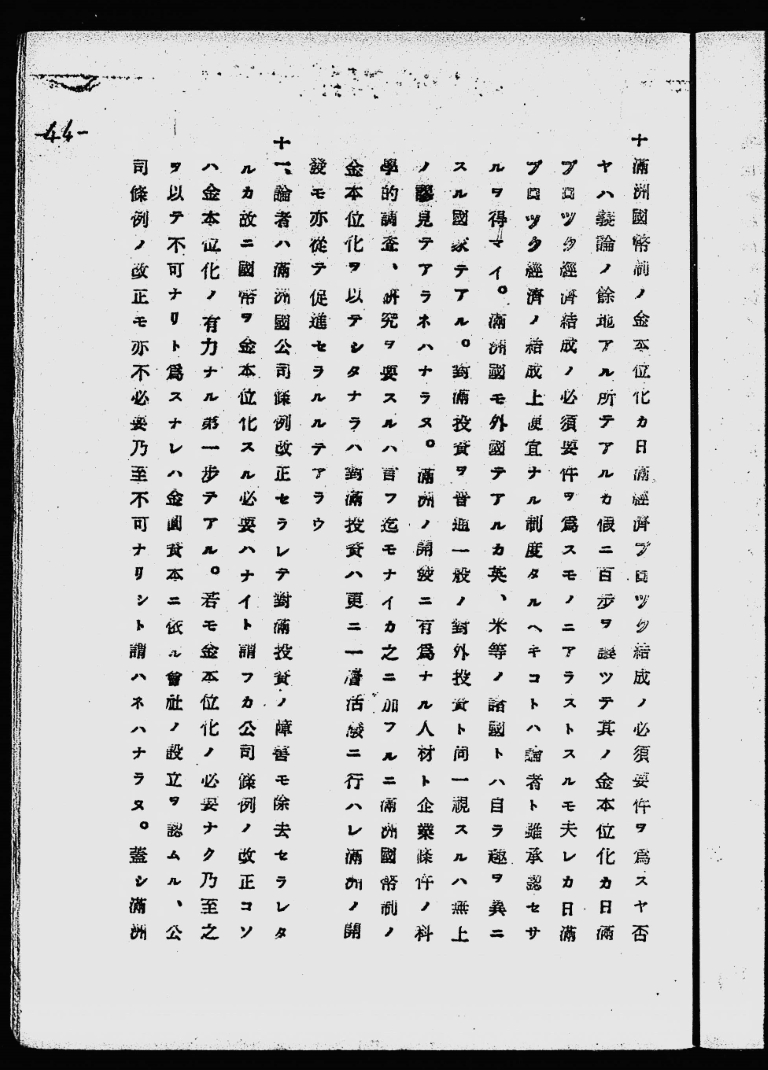 十 滿洲國幣制ノ金本位化カ日滿經濟ブロツク結成ノ必須要件ヲ爲スヤ否
ヤハ議論ノ餘地アル所テアルカ假ニ百歩ヲ讓ツテ其ノ金本位化カ日滿
ブロツク經濟結成ノ必須要件ヲ爲スモノニアラストスルモ夫レカ日滿
ブロツク經濟ノ結成上便宜ナル制度タルヘキコトハ論者ト雖承認セサ
ルヲ得マイ。滿洲國モ外國テアルカ英、米等ノ諸國トハ自ラ趣ヲ異ニ
スル國家テアル。對滿投資ヲ普通一般ノ對外投資ト同一視スルハ無上
ノ謬見テアラネハナラヌ。滿洲ノ開發ニ有爲ナル人材ト企業條件ノ科
學的調査、研究ヲ要スルハ言フ迄モナイカ之ニ加フルニ滿洲國幣制ノ
金本位化ヲ以テシタナラハ對滿投資ハ更ニ一層活潑ニ行ハレ滿洲ノ開
發モ亦從テ促進セラルルテアラウ
十一、論者ハ滿洲國公司條例改正セラレテ對滿投資ノ障害モ除去セラレタ
ルカ故ニ國幣ヲ金本位化スル必要ハナイト謂フカ公司條例ノ改正コソ
ハ金本位化ノ有力ナル第一歩テアル。若モ金本位化ノ必要ナク乃至之
ヲ以テ不可ナリト爲スナレハ金圓資本ニ依ル會社ノ設立ヲ認ムル、公
司條例ノ改正モ亦不必要乃至不可ナリシト謂ハネハナラヌ。蓋シ滿洲
-44-